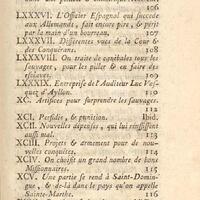 106
LXXXVI. L'Officier Espagnol qui succede
aux Allemands, fait encore pire, & périt
par la main d'un bourreau. 107
LXXXVII. Différentes vues de la Cour &
des Conquérans. 108
LXXXVIII. On traite de canibales tous les
sauvages, pour les piller & en faire des
esclaves. 110
LXXXIX. Entreprise de l'Auditeur Luc Vas-
quez d'Ayllon. 110
XC. Artifices pour surprendre les sauvages.
112
XCI. Perfidie, & punition. Ibid.
XCII. Nouvelles dépenses, qui lui réussissent
aussi mal. 113
XCIII. Projets & armement pour de nou-
velles conquêtes. 114
XCIV. On choisit un grand nombre de bons
Missionnaires. 115
XCV. Une partie se rend à Saint-Domin-
gue, & de-là dans le pays qu'on appelle
Sainte-Marthe. 116